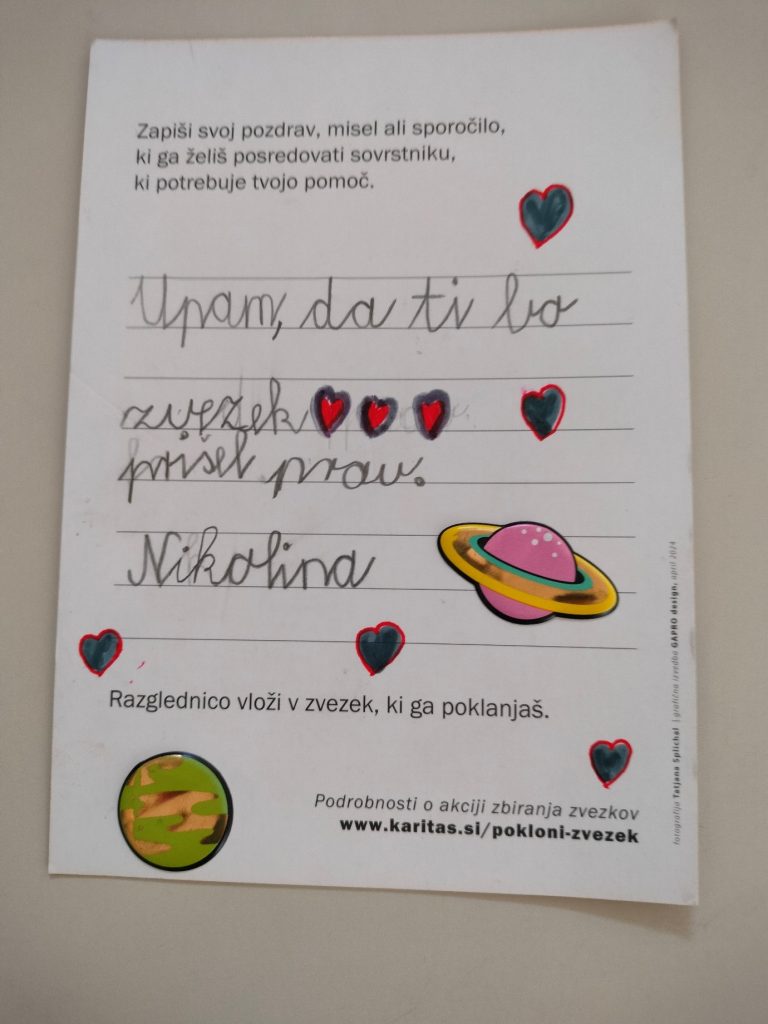 Zapiši svoj pozdrav, misel ali sporočilo,
ki ga želiš posredovati sovrstniku,
ki potrebuje tvojo pomoč.
Upam, da ti bo
zvezek
prišel prav.
Nikolina
Razglednico vloži v zvezek, ki ga poklanjaš.
Podrobnosti o akciji zbiranja zvezkov
www.karitas.si/pokloni-zvezek
fotografija Tatjana Splichal | grafična izvedba GAPRO design, april 2024